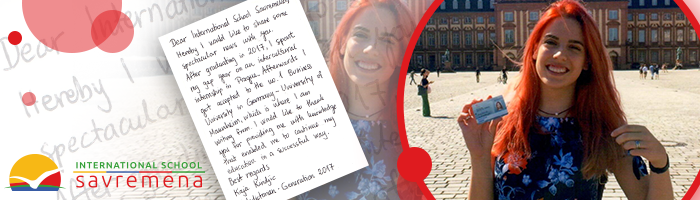 Dear International School Savremena,
Hereby I would like to share some
spectacular news with you.
After graduating in 2017, I spent
my gap year on an intercultural
internship in Prague. Afterwards I
got accepted to the no. 1 Business
University in Germany - University of
Mannheim, which is where I am
writing from. I would like to thank
you for providing me with knowledge
that enabled me to continue my
education in a successful way.
Best regards
Kaja
Generation 2017
Dear International
Hereby I
spectacular
INTERNATIONAL SCHOOL
savremena